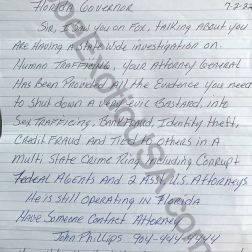 Florida Governor 7-2-22
Sir, I saw you on Fox, talking About you
Are Having A State Wide investigation on
Human Trafficing, your Attorney General
Has Been Provided All the Evidence you need
to Shut down A very evil Bastard, into
Sex Trafficing, Bank Fraud, Identity theft,
Credit Fraud And Tied to others in A
Multi State Crime Ring including Corrupt
Federal Agents And 2 Ass. U.S. Attorneys
He is still Operating in Florida
Have Someone Contact Attorney
John Phillips 904-444-4444